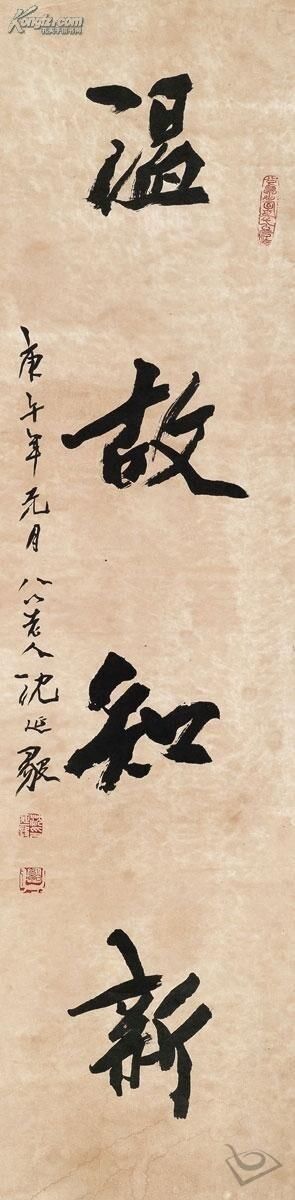 Kongfz.com
孔夫子旧书网
温故知新
庚午年元月八八老人沈延毅